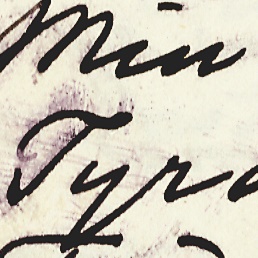 Min
Tyr